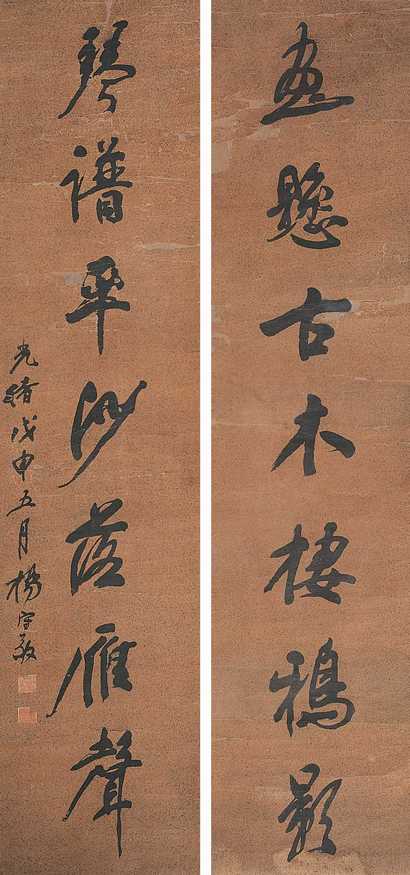 畫懸古木棲鴉影
琴譜平沙落雁聲
光緒戊申五月楊守敬